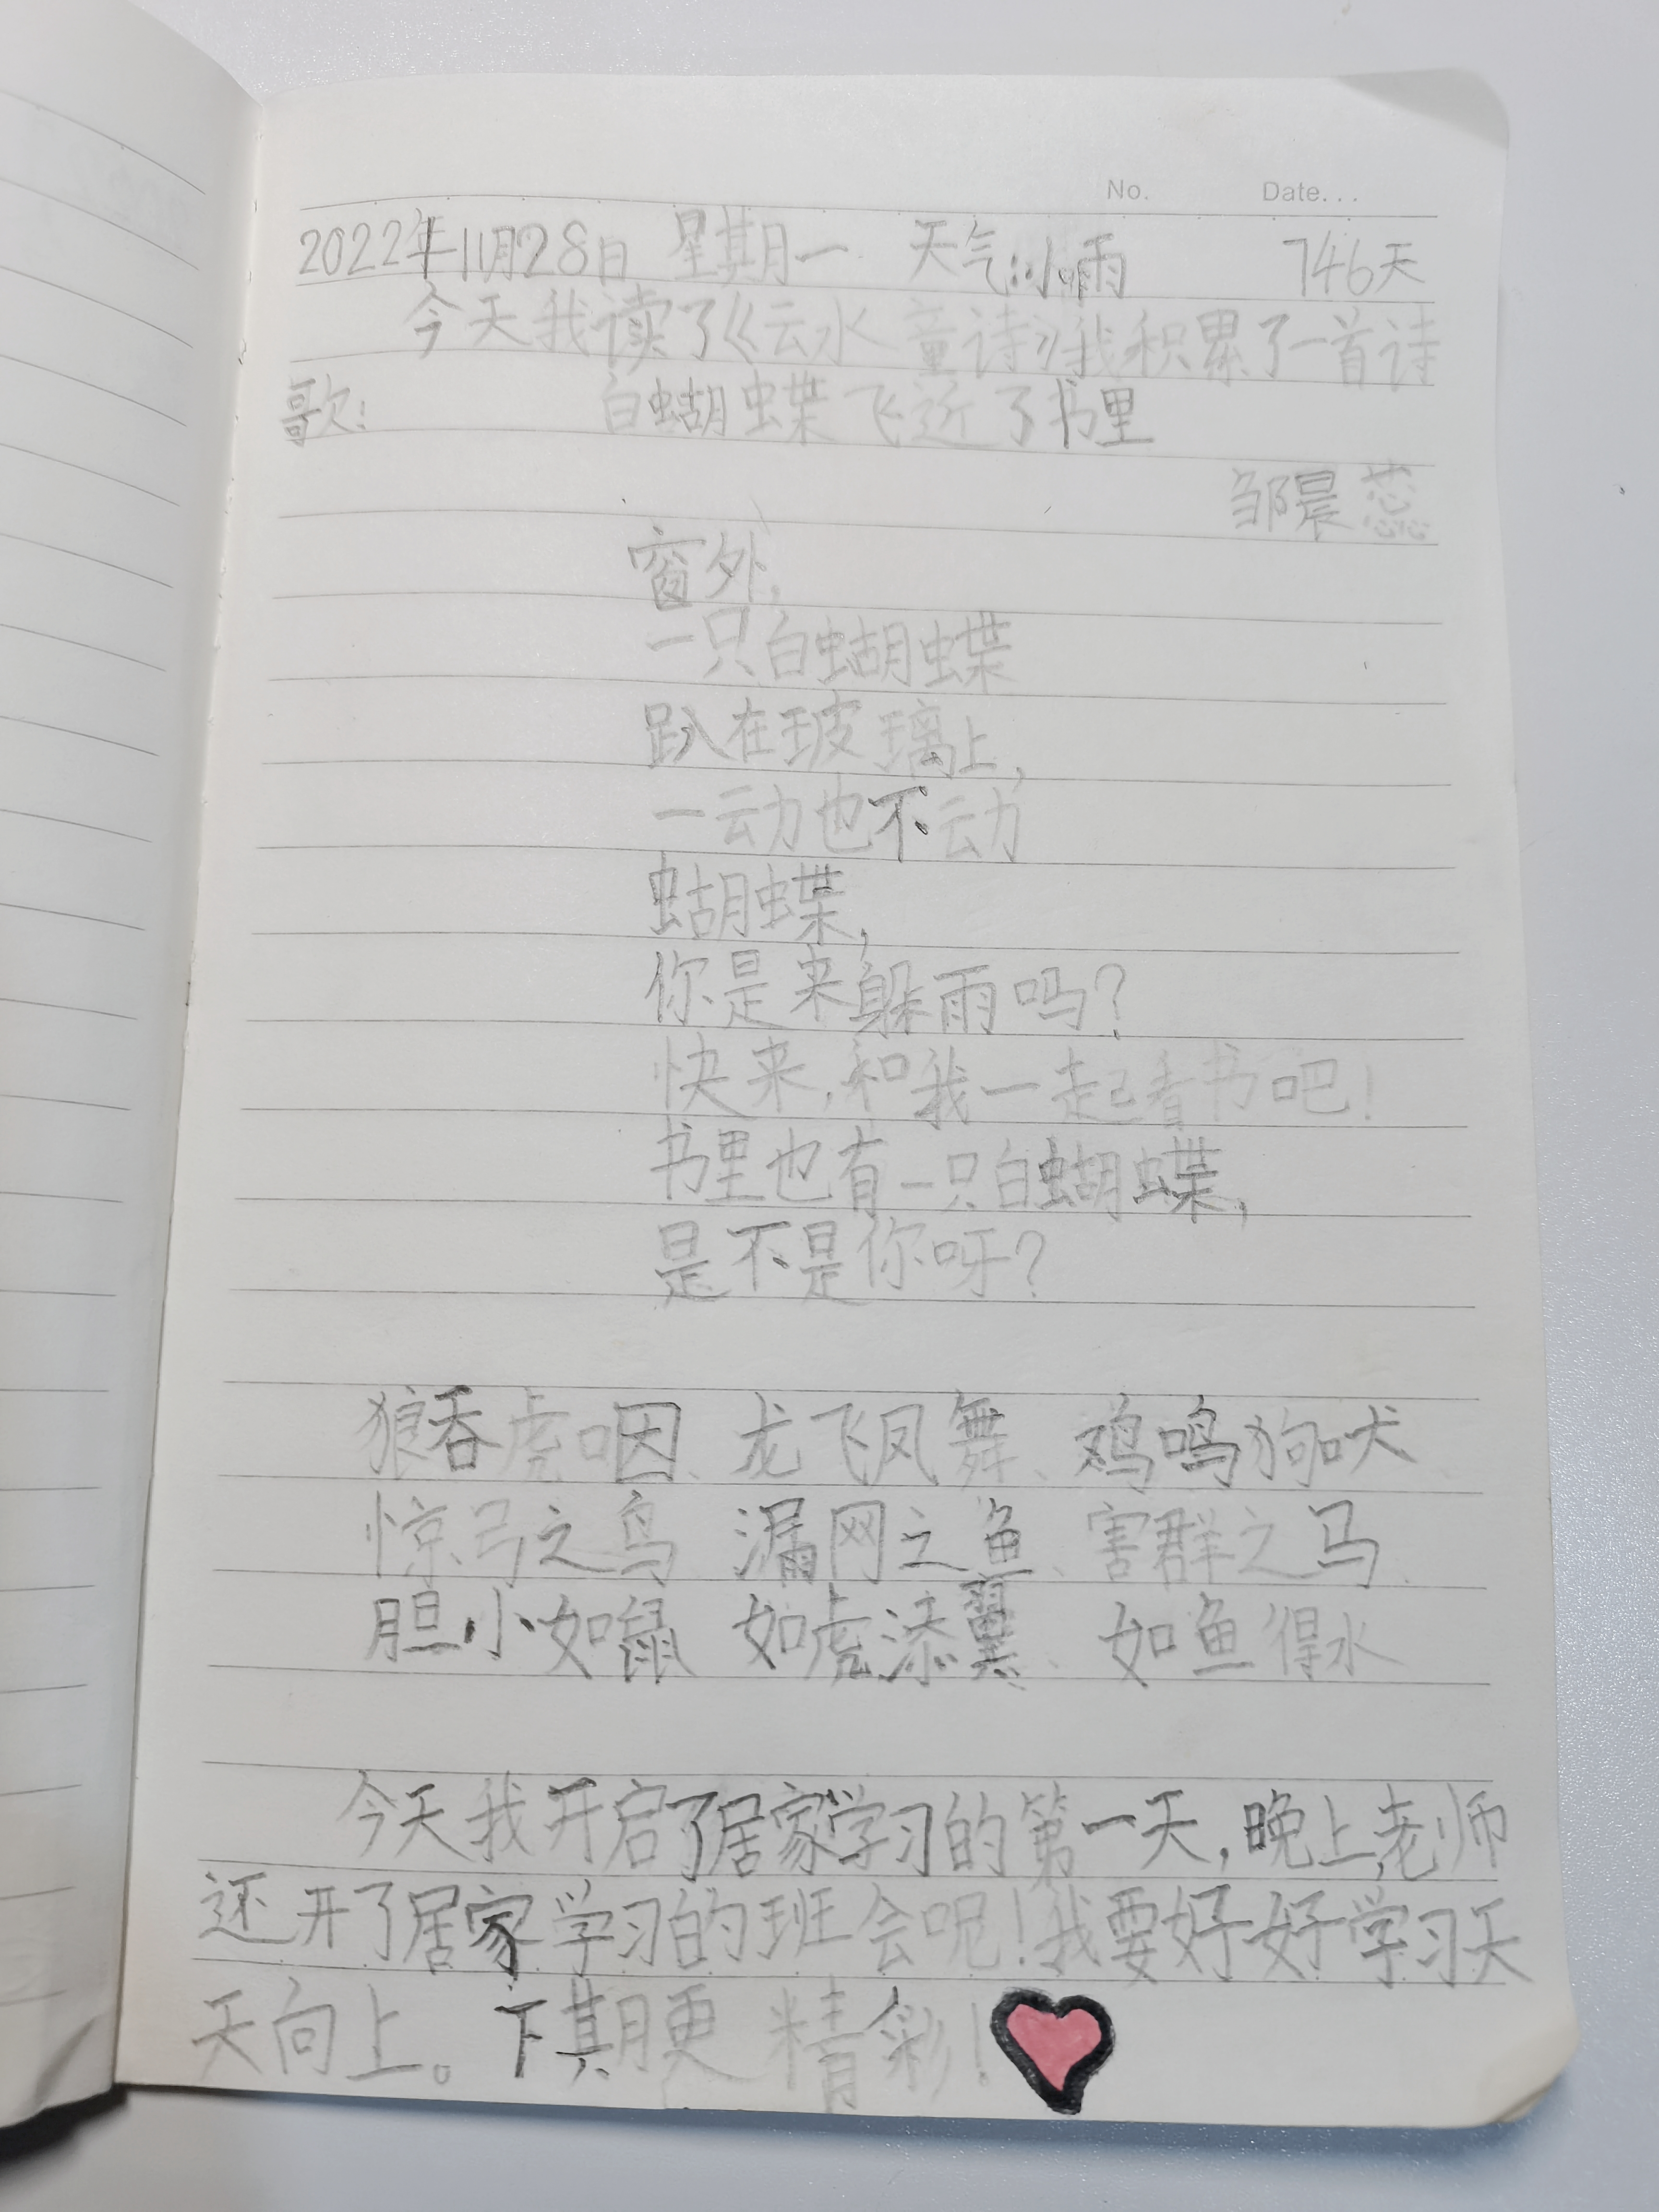 No. Date...
2022年11月28日 星期一 天气:小雨 746天
今天我读了《云水童诗》我积累了一首诗
歌: 白蝴蝶飞近了书里
邹晨蕊
窗外,
一只白蝴蝶
趴在玻璃上,
一动也不动
蝴蝶,
你是来躲雨吗?
快来,和我一起看书吧!
书里也有一只白蝴蝶,
是不是你呀?
狼吞虎咽、龙飞凤舞、鸡鸣狗吠
惊弓之鸟 漏网之鱼、害群之马、
胆小如鼠 如虎添翼、如鱼得水
今天我开启了居家学习的第一天,晚上,老师
还开了居家学习的班会呢!我要好好学习天
天向上。下期更精彩!